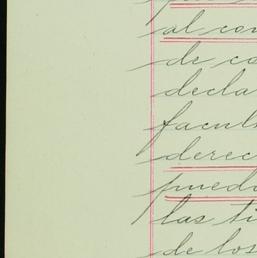 al con
de co
decla
facul
derec
pued
las ti
de los